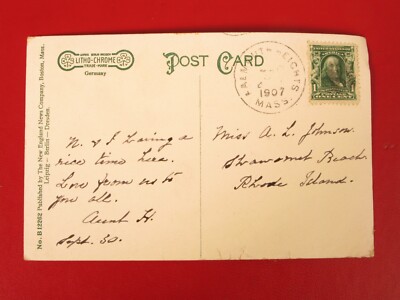 LITHO-CHROME
TRADE MARK
Germany
POST CARD
FALMOUTH HEIGHTS
1907
MASS.
1 1
No. B 12262 Published by The New England News Company, Boston, Mass.
Leipzig — Berlin — Dresden.
W. & I having a
nice time here.
Love from us to
you all.
Aunt H.
Sept. 30.
Miss A. L. Johnson.
Shawomet Beach.
Rhode Island.